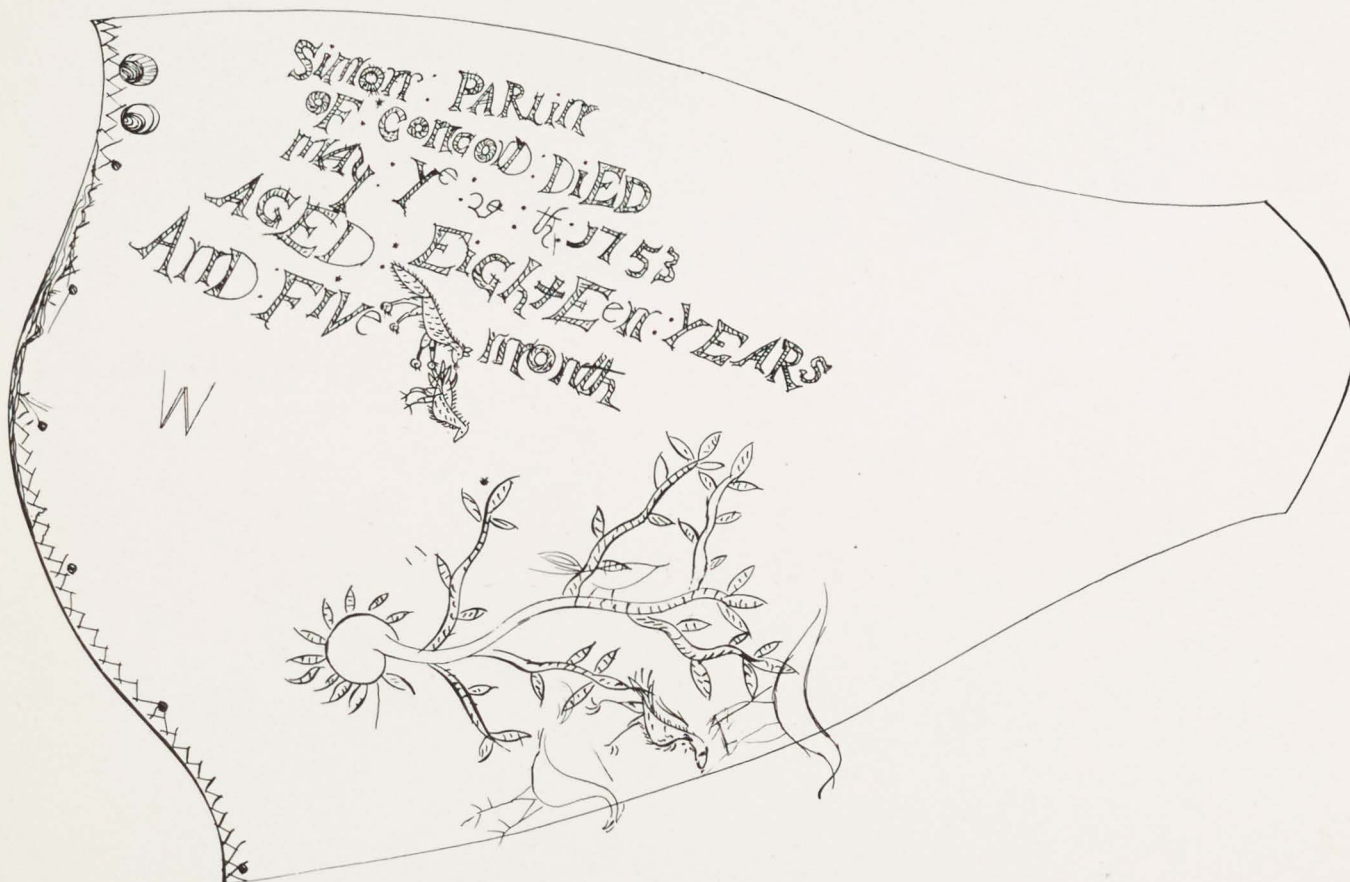 Simon : PARLin
OF : ConcoD : DiED
mAy : Ye : 29 : th : 1753
AGED : EiGhtEen : YEARs
AnD : FiVe month
W